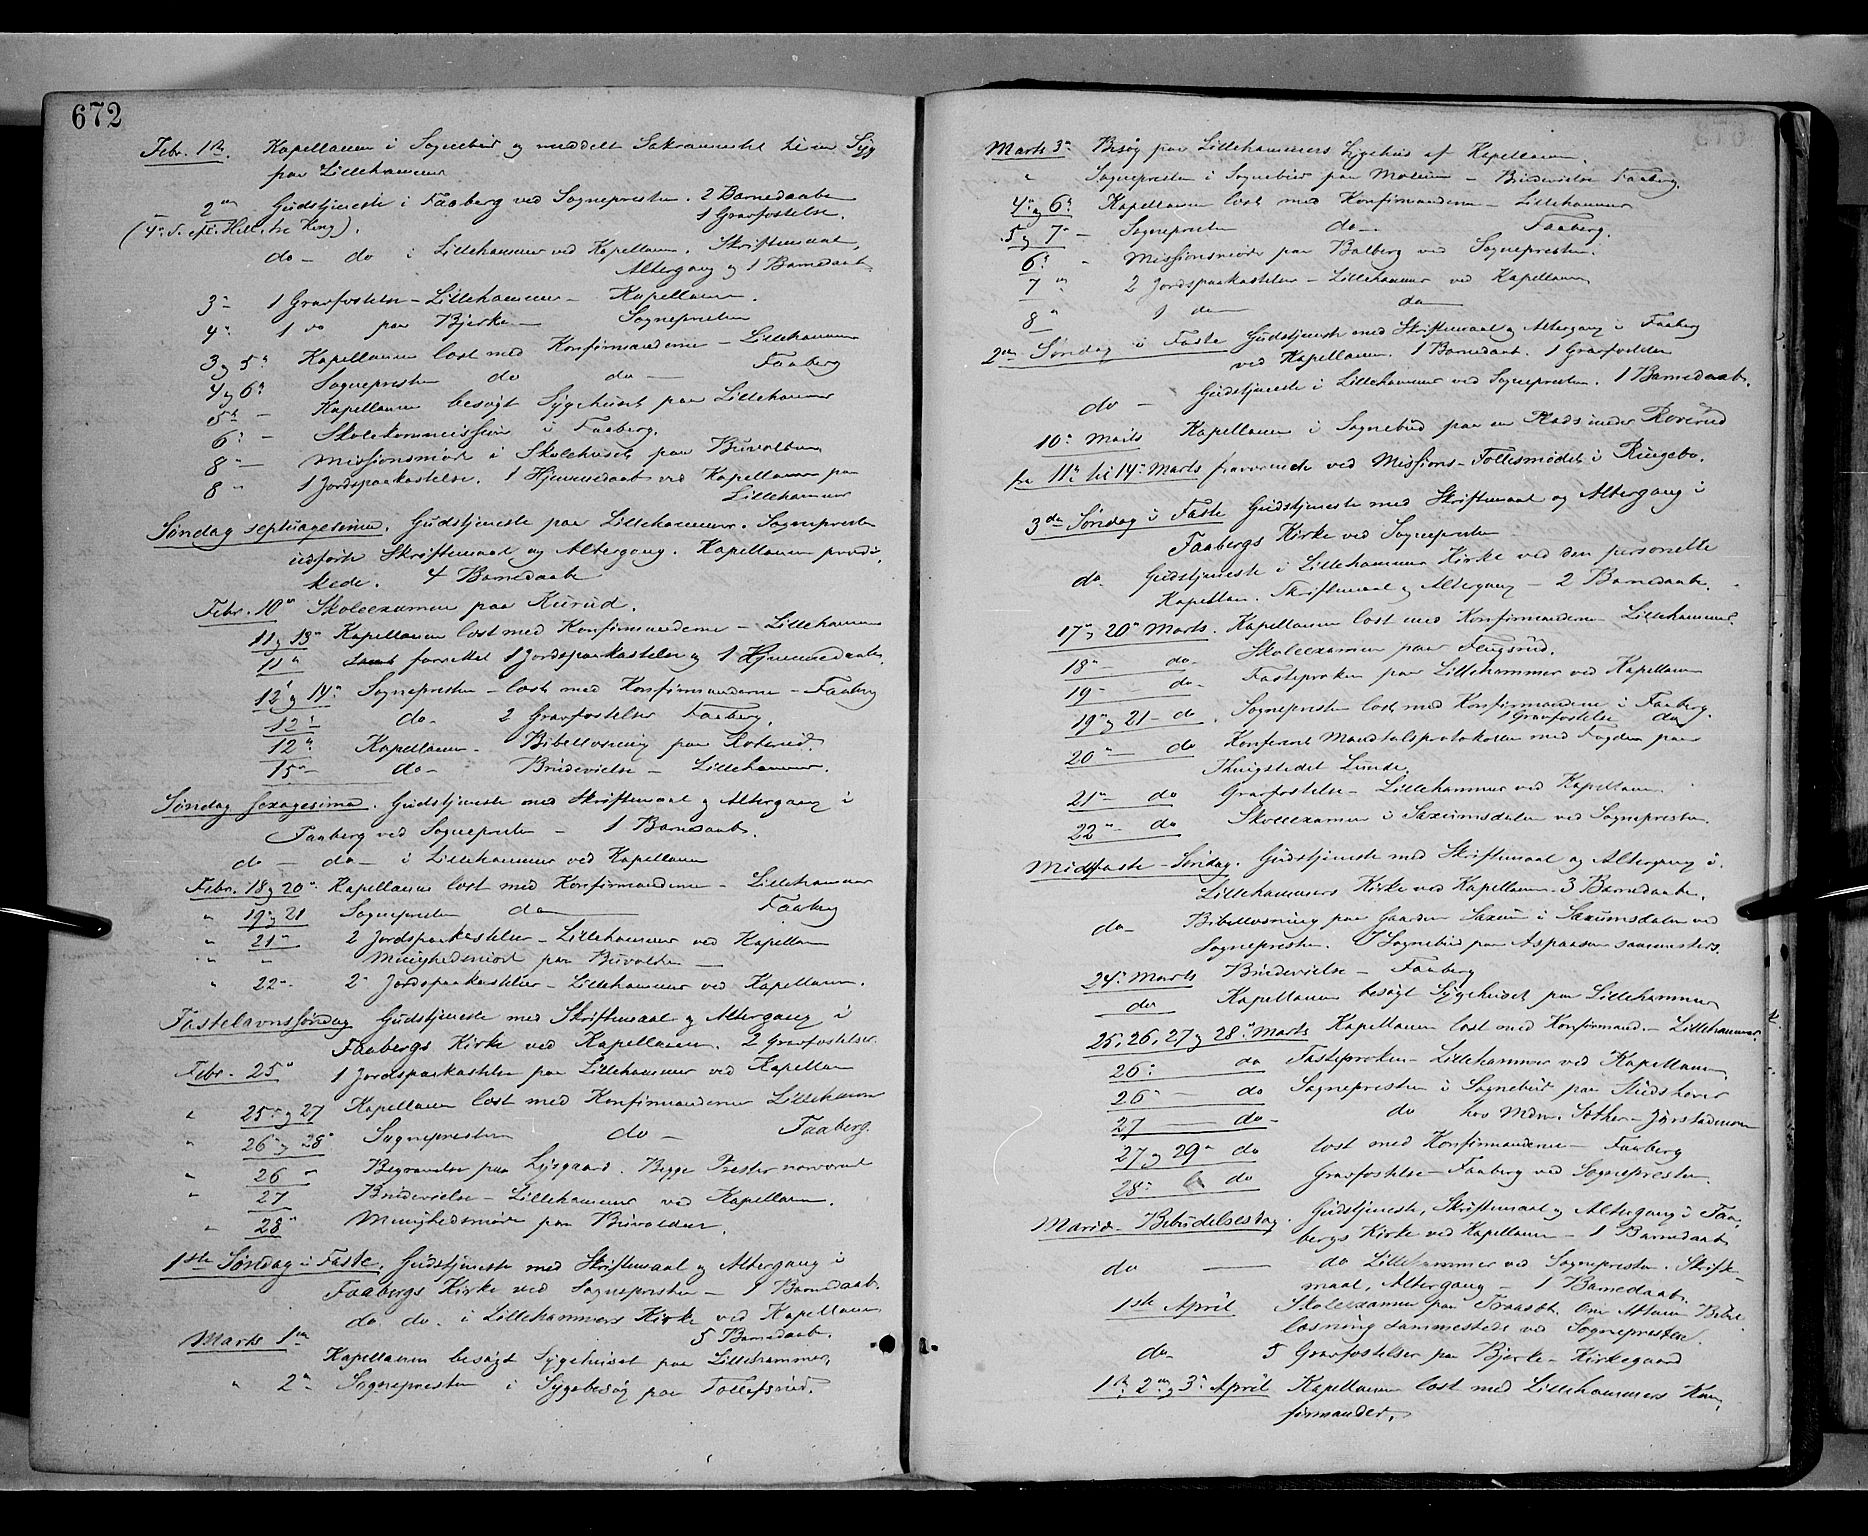 672
Febr. 1ste. Kapellanen i Sognebud og meddelt Sakramentet til en Syg
paa Lillehammer
2den Gudstjeneste i Faaberg ved Sognepresten. 2 Barnedaabe
1 Gravfæstelse.
(4de S. eft. Hell. tre Kong).
do - do i Lillehammer ved Kapellanen. Skriftemaal,
Altergang og 1 Barnedaab
3 - 1 Gravfæstelse - Lillehammer - Kapellanen.
4 1 do paa Bjerke - Sognepresten
3 og 5 Kapellanen læst med Konfirmanderne - Lillehammer
4 og 6 Sognepresten do do - Faaberg
5te - Kapellanen besøgt Sygehuset paa Lillehammer
6 - Skolekommission i Faaberg.
8 - Missionsmøde i Skolehuset paa Buvolden
8 - 1 Jordspaakastelse. 1 Hjemmedaab ved Kapellanen paa
Lillehammer
Søndag septuagesima. Gudstjeneste paa Lillehammer. Sognepresten
udførte Skriftemaal og Altergang. Kapellanen prædi-
kede. 4 Barnedaabe
Febr. 10 Skoleexamen paa Rurud.
11 og 13 Kapellanen læst med Konfirmanderne - Lillehammer
11 samt forrettet 1 Jordspaakastelse og 1 Hjemmedaab.
12 og 14 Sognepresten - læst med Konfirmanderne - Faaberg
12 do - 2 Gravfæstelser Faaberg.
12 Kapellanen - Bibellæsning paa
15 - do - Brudevielse - Lillehammer.
Søndag sexagesima. Gudstjeneste med Skriftemaal og Altergang i
Faaberg ved Sognepresten - 1 Barnedaab.
do - do - i Lillehammer ved Kapellanen
Febr. 18 og 20 Kapellanen læst med Konfirmanderne - Lillehammer
" 19 og 21 Sognepresten do Faaberg
" 21 2 Jordspaakastelser - Lillehammer ved Kapellanen
" " Menighedsmøde paa Buvolden -
" 22 - 2 Jordspaakastelser - Lillehammer ved Kapellanen.
Fastelavnssøndag Gudstjeneste med Skriftemaal og Altergang i
Faabergs Kirke ved Kapellanen. 2 Gravfæstelser.
Febr. 25 1 Jordspaakastelse paa Lillehammer ved Kapellanen
" 25 og 27 Kapellanen læst med Konfirmanderne Lillehammer
" 26 og 28 Sognepresten do - Faaberg.
" 26 Begravelse paa Lysgaard. Begge Prester nærværende
" 27 Brudevielse - Lillehammer ved Kapellanen.
" 28 Menighedsmøde paa Buvolden.
1ste Søndag i Faste. Gudstjeneste med Skriftemaal og Altergang i
Faabergs Kirke ved Sognepresten - 1 Barnedaab.
do. do. i Lillehammers Kirke ved Kapellanen
5 Barnedaabe.
Marts 1ste Kapellanen besøgt Sygehuset paa Lillehammer,
" 2 Sognepresten i Sygebesøg paa Tollefsrud.
Marts 3 Besøg paa Lillehammers Sygehus af Kapellanen.
" Sognepresten i Sognebud paa - Brudevielse Faaberg.
4 og 6 Kapellanen læst med Konfirmanderne - Lillehammer
5 og 7 - Sognepresten do - Faaberg.
6 - Missionsmøde paa Balberg ved Sognepresten.
7 2 Jordspaakastelser - Lillehammer ved Kapellanen
8 1 do do
2den Søndag i Faste Gudstjeneste med Skriftemaal og Altergang i Faaberg
ved Kapellanen. 1 Barnedaab. 1 Gravfæstelse
do - Gudstjeneste i Lillehammer ved Sognepresten. 1 Barnedaab.
10 Marts Kapellanen i Sognebud paa en Plads under Roverud
fra 11 til 14 Marts fraværende ved Missions-Fællesmødet i Ringebo.
3die Søndag i Faste Gudstjeneste med Skriftemaal og Altergang i
Faabergs Kirke ved Sognepresten
do. Gudstjeneste i Lillehammer Kirke ved den personelle
Kapellan. Skriftemaal og Altergang - 2 Barnedaabe.
17 og 20 Marts. Kapellanen læst med Konfirmanderne - Lillehammer.
18 - do - Skoleexamen paa
19 - do - Fastepræken paa Lillehammer ved Kapellanen
19 og 21 - do. Sognepresten læst med Konfirmanderne i Faaberg.
1 Gravfæstelse do
20 - do Konfereret Mandtalsprotokollen med Fogden paa
Thingstedet Lunde.
21 - do Gravfæstelse - Lillehammer ved Kapellanen
22 - do Skoleexamen i Saxumsdalen ved Sognepresten.
Midfaste-Søndag. Gudstjeneste med Skriftemaal og Altergang i
Lillehammers Kirke ved Kapellanen. 3 Barnedaabe.
do - Bibellæsning paa Gaarden Saxum i Saxumsdalen ved
Sognepresten. I Sognebud paa sammesteds.
24 Marts Brudevielse - Faaberg
do Kapellanen besøgt Sygehuset paa Lillehammer
25, 26, 27 og 28 Marts Kapellanen læst med Konfirmand. - Lillehammer.
26 do Fastepræken - Lillehammer ved Kapellanen
26 - do Sognepresten i Sognebud paa
27 - do - do hos
27 og 29 do læst med Konfirmanderne - Faaberg
28 do Gravfæstelse - Faaberg ved Sognepresten.
Mariæ-Bebudelsesdag. Gudstjeneste, Skriftemaal og Altergang i Faa-
bergs Kirke ved Kapellanen - 1 Barnedaab
do - do Lillehammer ved Sognepresten. Skrifte-
maal, Altergang - 1 Barnedaab.
1ste April Skoleexamen paa Om Aftenen Bibel-
læsning sammesteds ved Sognepresten.
do - 5 Gravfæstelser paa Bjerke-Kirkegaard
1ste, 2den og 3 April Kapellanen læst med Lillehammers Kon-
firmander.